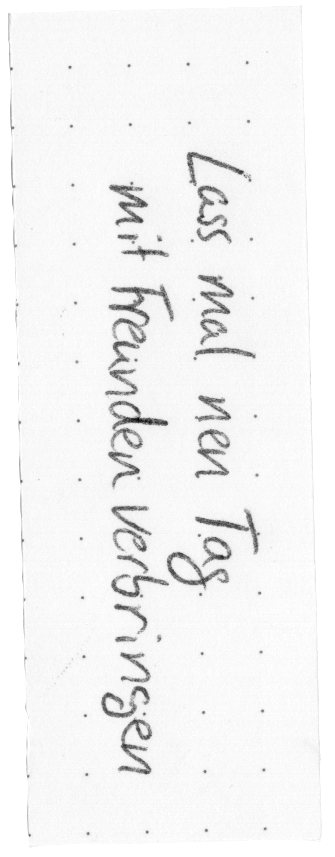 Lass mal nen Tag
mit Freunden verbringen